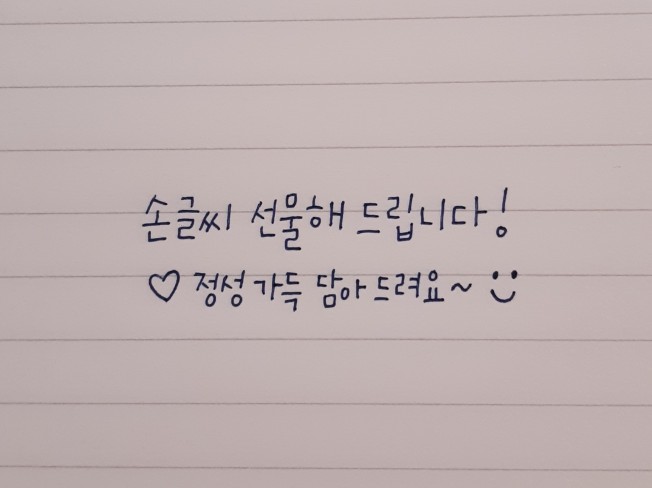 손글씨 선물해 드립니다!
♡ 정성 가득 담아 드려요~ :)